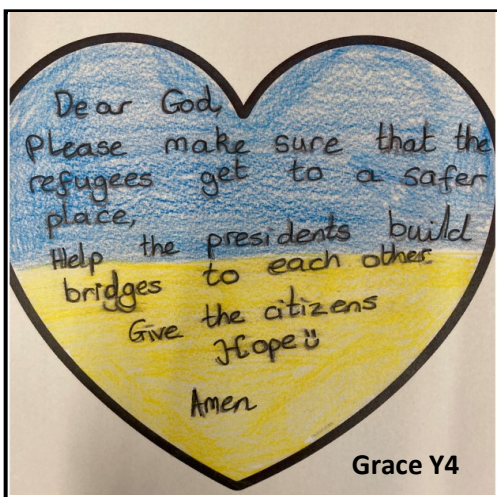 Dear God,
Please make sure that the
refugees get to a safer
place,
Help the presidents build
bridges to each other
Give the citizens
Hope
Amen
Grace Y4